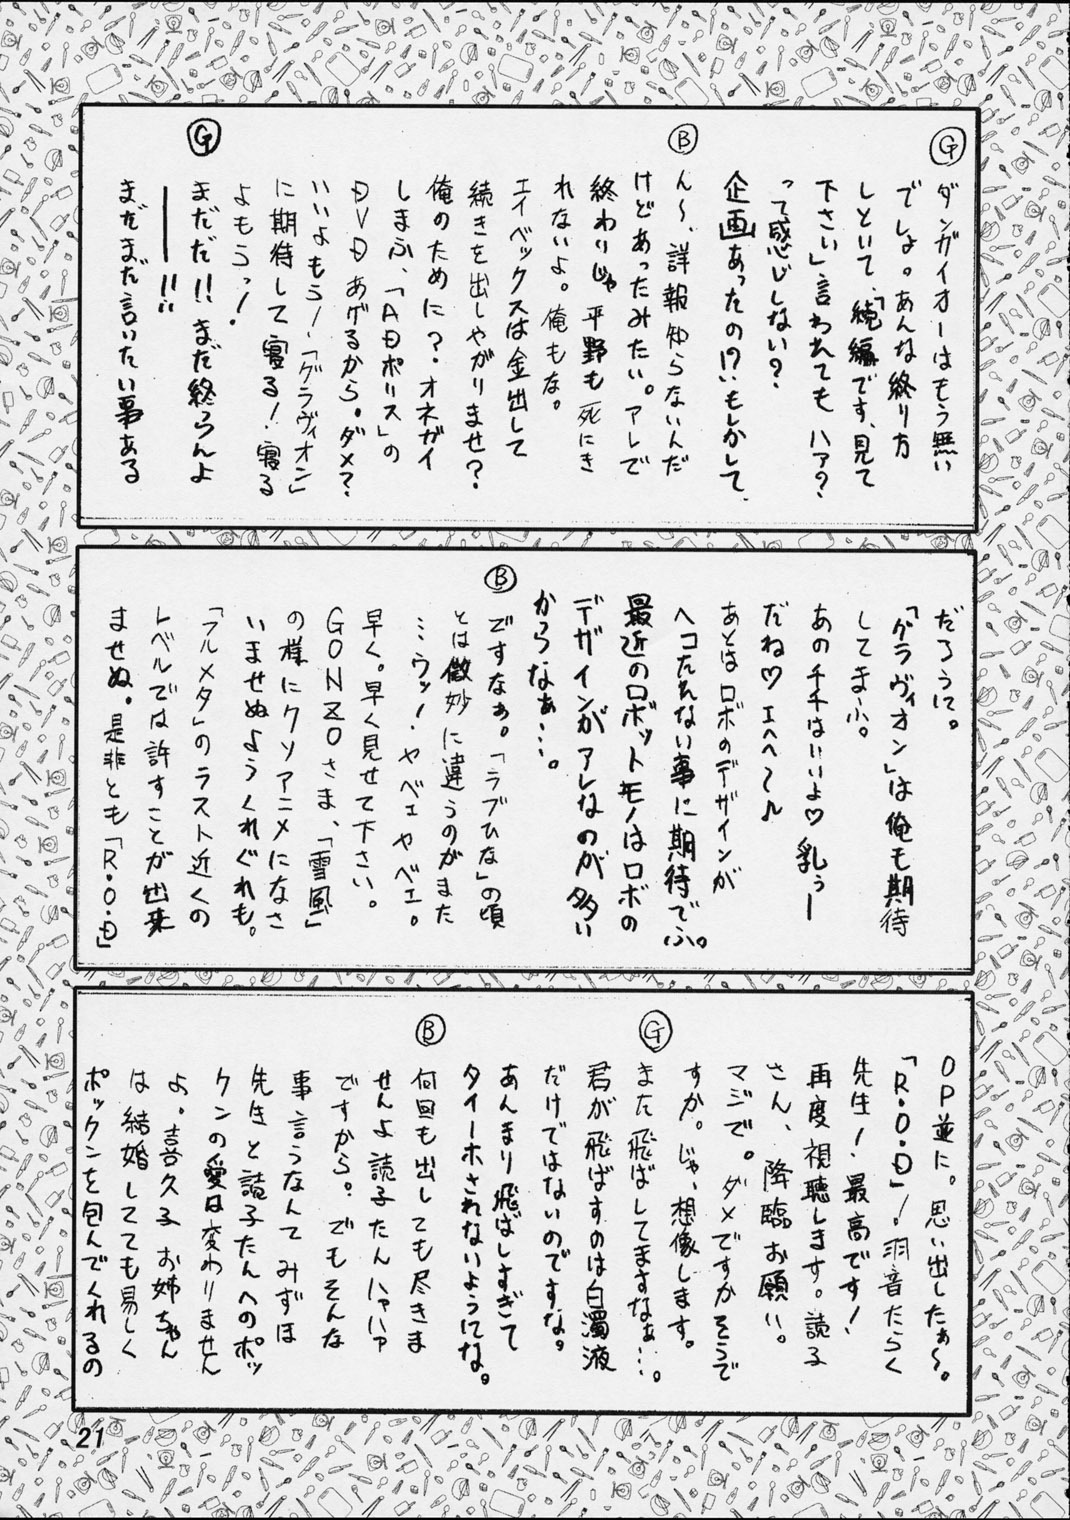 Ⓖ
ダンガイオーはもう無い
でしょ。あんな終り方
しといて、「続編です、見て
下さい」言われても ハァ?
って感じしない?
Ⓑ
企画あったの!?もしかして、
ん〜、詳報知らないんだ
けどあったみたい。アレで
終わりじゃ 平野も死にき
れないよ。俺もな。
エイベックスは金出して
続きを出しやがりませ?
俺のために?オネガイ
しまふ、「ADポリス」の
DVDあげるから。ダメ?
いいよもう!「グラヴィオン」
に期待して寝る!寝る
よもうっ!
Ⓖ
まだだ!!まだ終らんよ
――!!
まだまだ言いたい事ある
だろうに。
「グラヴィオン」は俺も期待
してまふ。
あの千千はいいよ♡乳ぅー
だね♡エヘヘ〜♪
あとはロボのデザインが
ヘコたれない事に期待でふ。
最近のロボットモノはロボの
デザインがアレなのが多い
からなぁ…。
Ⓑ
ですなぁ。「ラブひな」の頃
とは微妙に違うのがまた
…ウッ!ヤベェヤベェ。
早く。早く見せて下さい。
GONZOさま、「雪風」
の様にクソアニメになさ
いませぬようくれぐれも。
「フルメタ」のラスト近くの
レベルでは許すことが出来
ませぬ。是非とも「R.O.D」
OP並に。思い出したぁ〜。
「R.O.D」!羽音たらく
先生!最高です!
再度視聴します。読子
さん、降臨お願い。
マジで。ダメですかそうで
すか。じゃ、想像します。
Ⓖ
また飛ばしてますなぁ…。
君が飛ばすのは白濁液
だけではないのですな。
あんまり飛ばしすぎて
タイーホされないようにな。
Ⓑ
何回も出しても尽きま
せんよ読子たんハァハァ
ですから。でもそんな
事言うなんてみずほ
先生と読子たんへのポッ
クンの愛は変わりません
よ。喜久子お姉ちゃん
は結婚してても易しく
ポックンを包んでくれるの
21